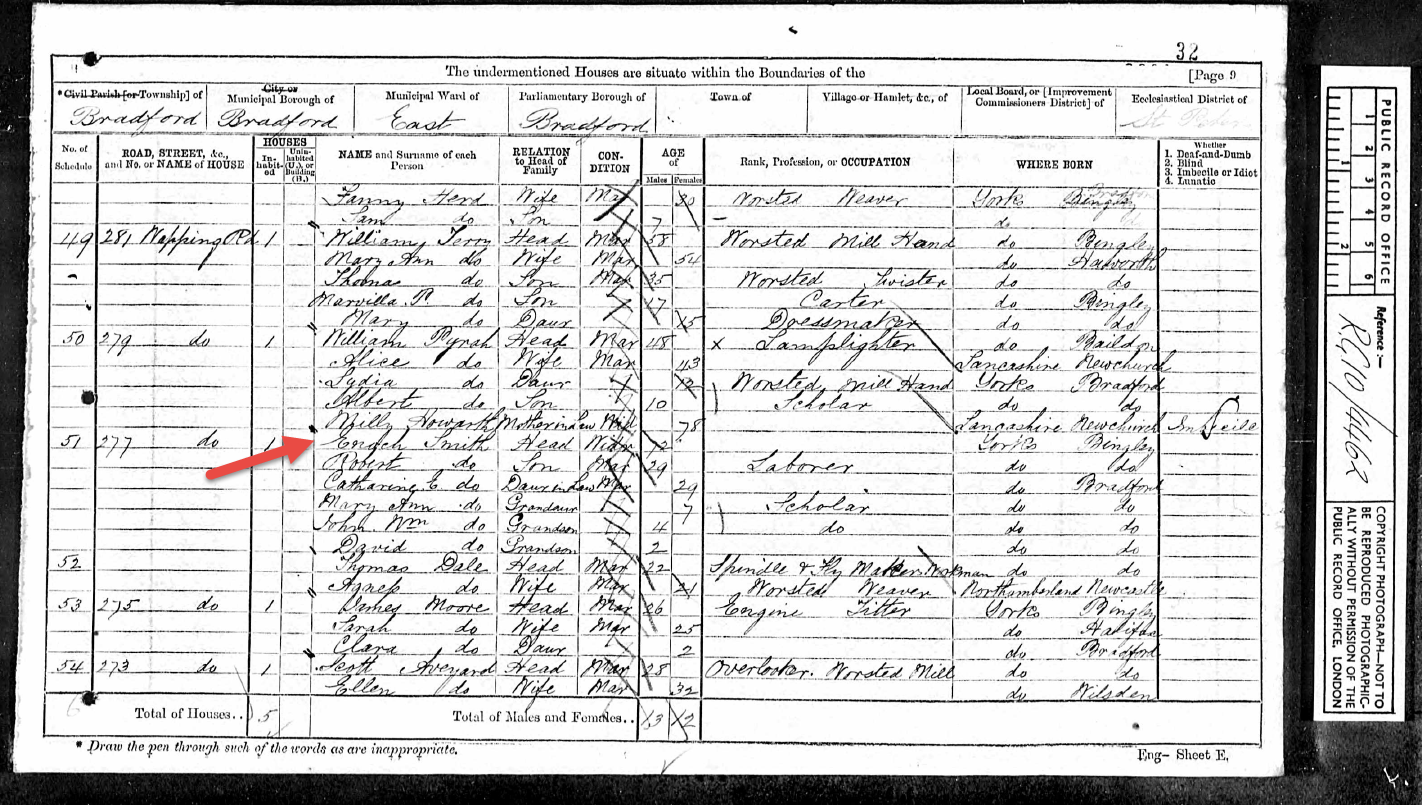 32
The undermentioned Houses are situate within the Boundaries of the [Page 9
* Civil Parish [or Township] of City or Municipal Borough of Municipal Ward of Parliamentary Borough of Town of Village or Hamlet, &c., of Local Board, or [Improvement Commissioners District] of Ecclesiastical District of
Bradford Bradford East Bradford St
No. of Schedule ROAD, STREET, &c., and No. or NAME of HOUSE HOUSES Inhabited Uninhabited (U.), or Building (B.) NAME and Surname of each Person RELATION to Head of Family CONDITION AGE of Males Females Rank, Profession, or OCCUPATION WHERE BORN Whether 1. Deaf-and-Dumb 2. Blind 3. Imbecile or Idiot 4. Lunatic
Fanny Herd Wife Mar 30 Worsted Weaver Yorks
Sam do Son 7 do
49 281 Wapping Rd 1 William Terry Head Mar 58 Worsted Mill Hand do Bingley
Mary Ann do Wife Mar 54 do Haworth
Thomas do Son Mar 35 Worsted Twister do do
Marvilla P. do Son 17 Carter do Bingley
Mary do Daur 15 Dressmaker do do
50 279 do 1 William Pyrah Head Mar 48 x Lamplighter do Baildon
Alice do Wife Mar 43 Lancashire Newchurch
Lydia do Daur 12 Worsted Mill Hand Yorks Bradford
Albert do Son 10 Scholar do do
Milly Howarth Mother in Law Wid 78 Lancashire Newchurch Imbecile
51 277 do 1 Enoch Smith Head Widr Yorks Bingley
Robert do Son Mar 29 Laborer do do
Catharine E do Daur in Law Mar 29 do Bradford
Mary Ann do Grandaur 7 Scholar do do
John Wm do Grandson 4 do do do
David do Grandson 2 do do
52 Thomas Dale Head Mar 22 Spindle & Fly Maker Workman do do
Agness do Wife Mar 21 Worsted Weaver Northumberland Newcastle
53 275 do 1 James Moore Head Mar 26 Engine Fitter Yorks Bingley
Sarah do Wife Mar 25 do Halifax
Clara do Daur 2 do Bradford
54 273 do 1 Scott Aveyard Head Mar 28 Overlooker. Worsted Mill do do
Ellen do Wife Mar 32 do Wilsden
Total of Houses.. 5 Total of Males and Females.. 13 12
* Draw the pen through such of the words as are inappropriate.
Eng- Sheet E.
PUBLIC RECORD OFFICE
1 2 3 4 5 6
1 2
Reference :-
RG10/4462
COPYRIGHT PHOTOGRAPH-NOT TO BE REPRODUCED PHOTOGRAPHICALLY WITHOUT PERMISSION OF THE PUBLIC RECORD OFFICE, LONDON